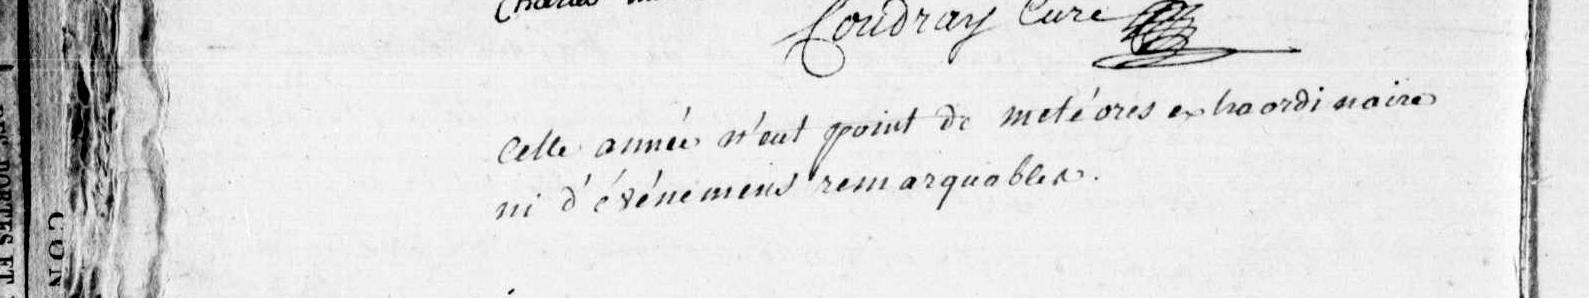 Charles
Coudray Curé
Cette année n'eut point de metéores extraordinaire
ni d'événemens remarquables.
CON
DES PORTES ET